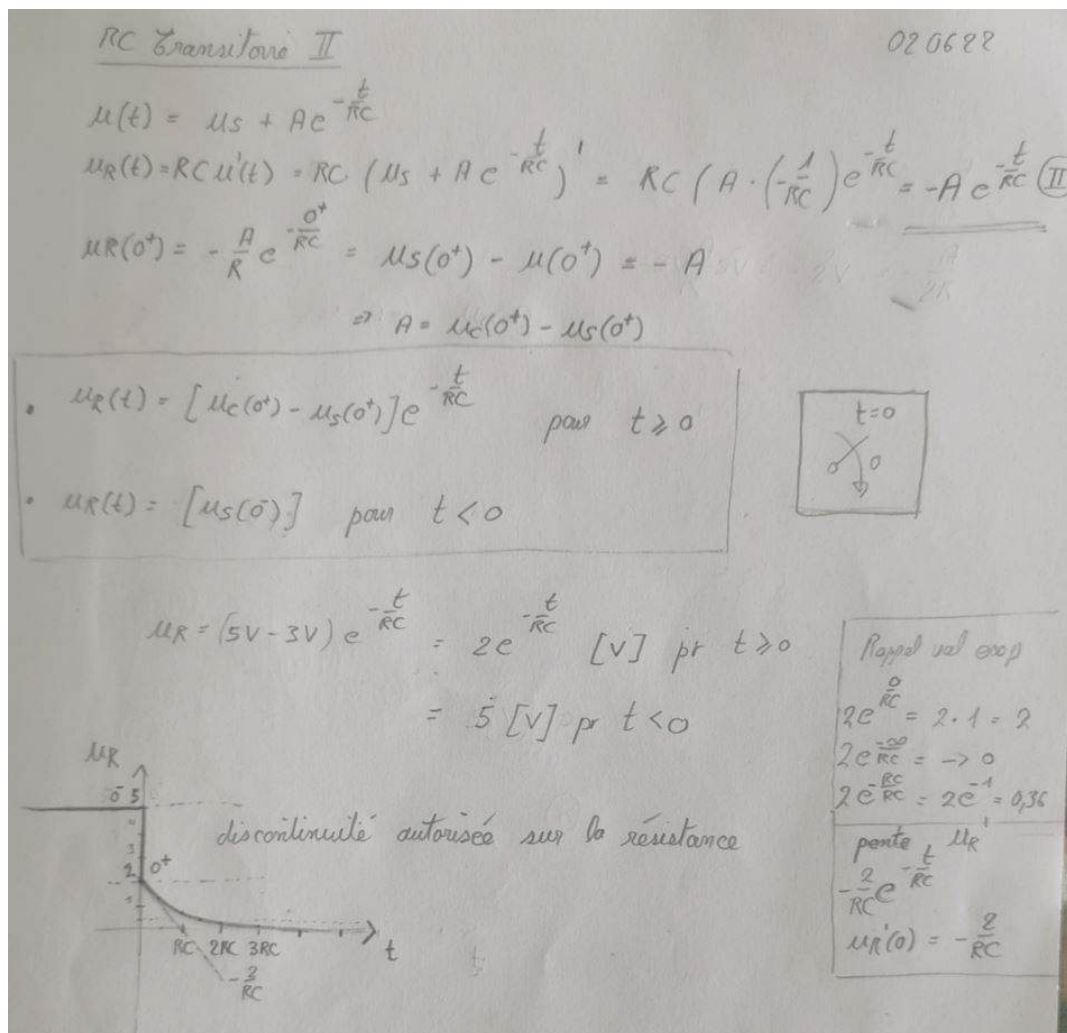 RC Transitoire II
020622
u(t) = us + Ae^(-t/RC)
uR(t) = RC u'(t) = RC (us + A e^(-t/RC))' = RC (A · (-1/RC) e^(-t/RC) = -A e^(-t/RC) (II)
uR(0⁺) = -A/R e^(-0⁺/RC) = us(0⁺) - u(0⁺) = - A
⇒ A = uc(0⁺) - us(0⁺)
• uR(t) = [uc(0⁺) - us(0⁺)] e^(-t/RC) pour t ⩾ 0
• uR(t) = [us(0⁻)] pour t < 0
t=0
uR = (5V - 3V) e^(-t/RC) = 2e^(-t/RC) [V] pr t ⩾ 0
= 5 [V] pr t < 0
Rappel val exp
2e^(0/RC) = 2 · 1 = 2
2e^(-∞/RC) = -> 0
2e^(-RC/RC) = 2e^(-1) = 0,36
pente uR'
-2/RC e^(-t/RC)
uR'(0) = -2/RC
uR
0⁻ 5
3
2 0⁺
1
discontinuité autorisée sur la résistance
RC 2RC 3RC t